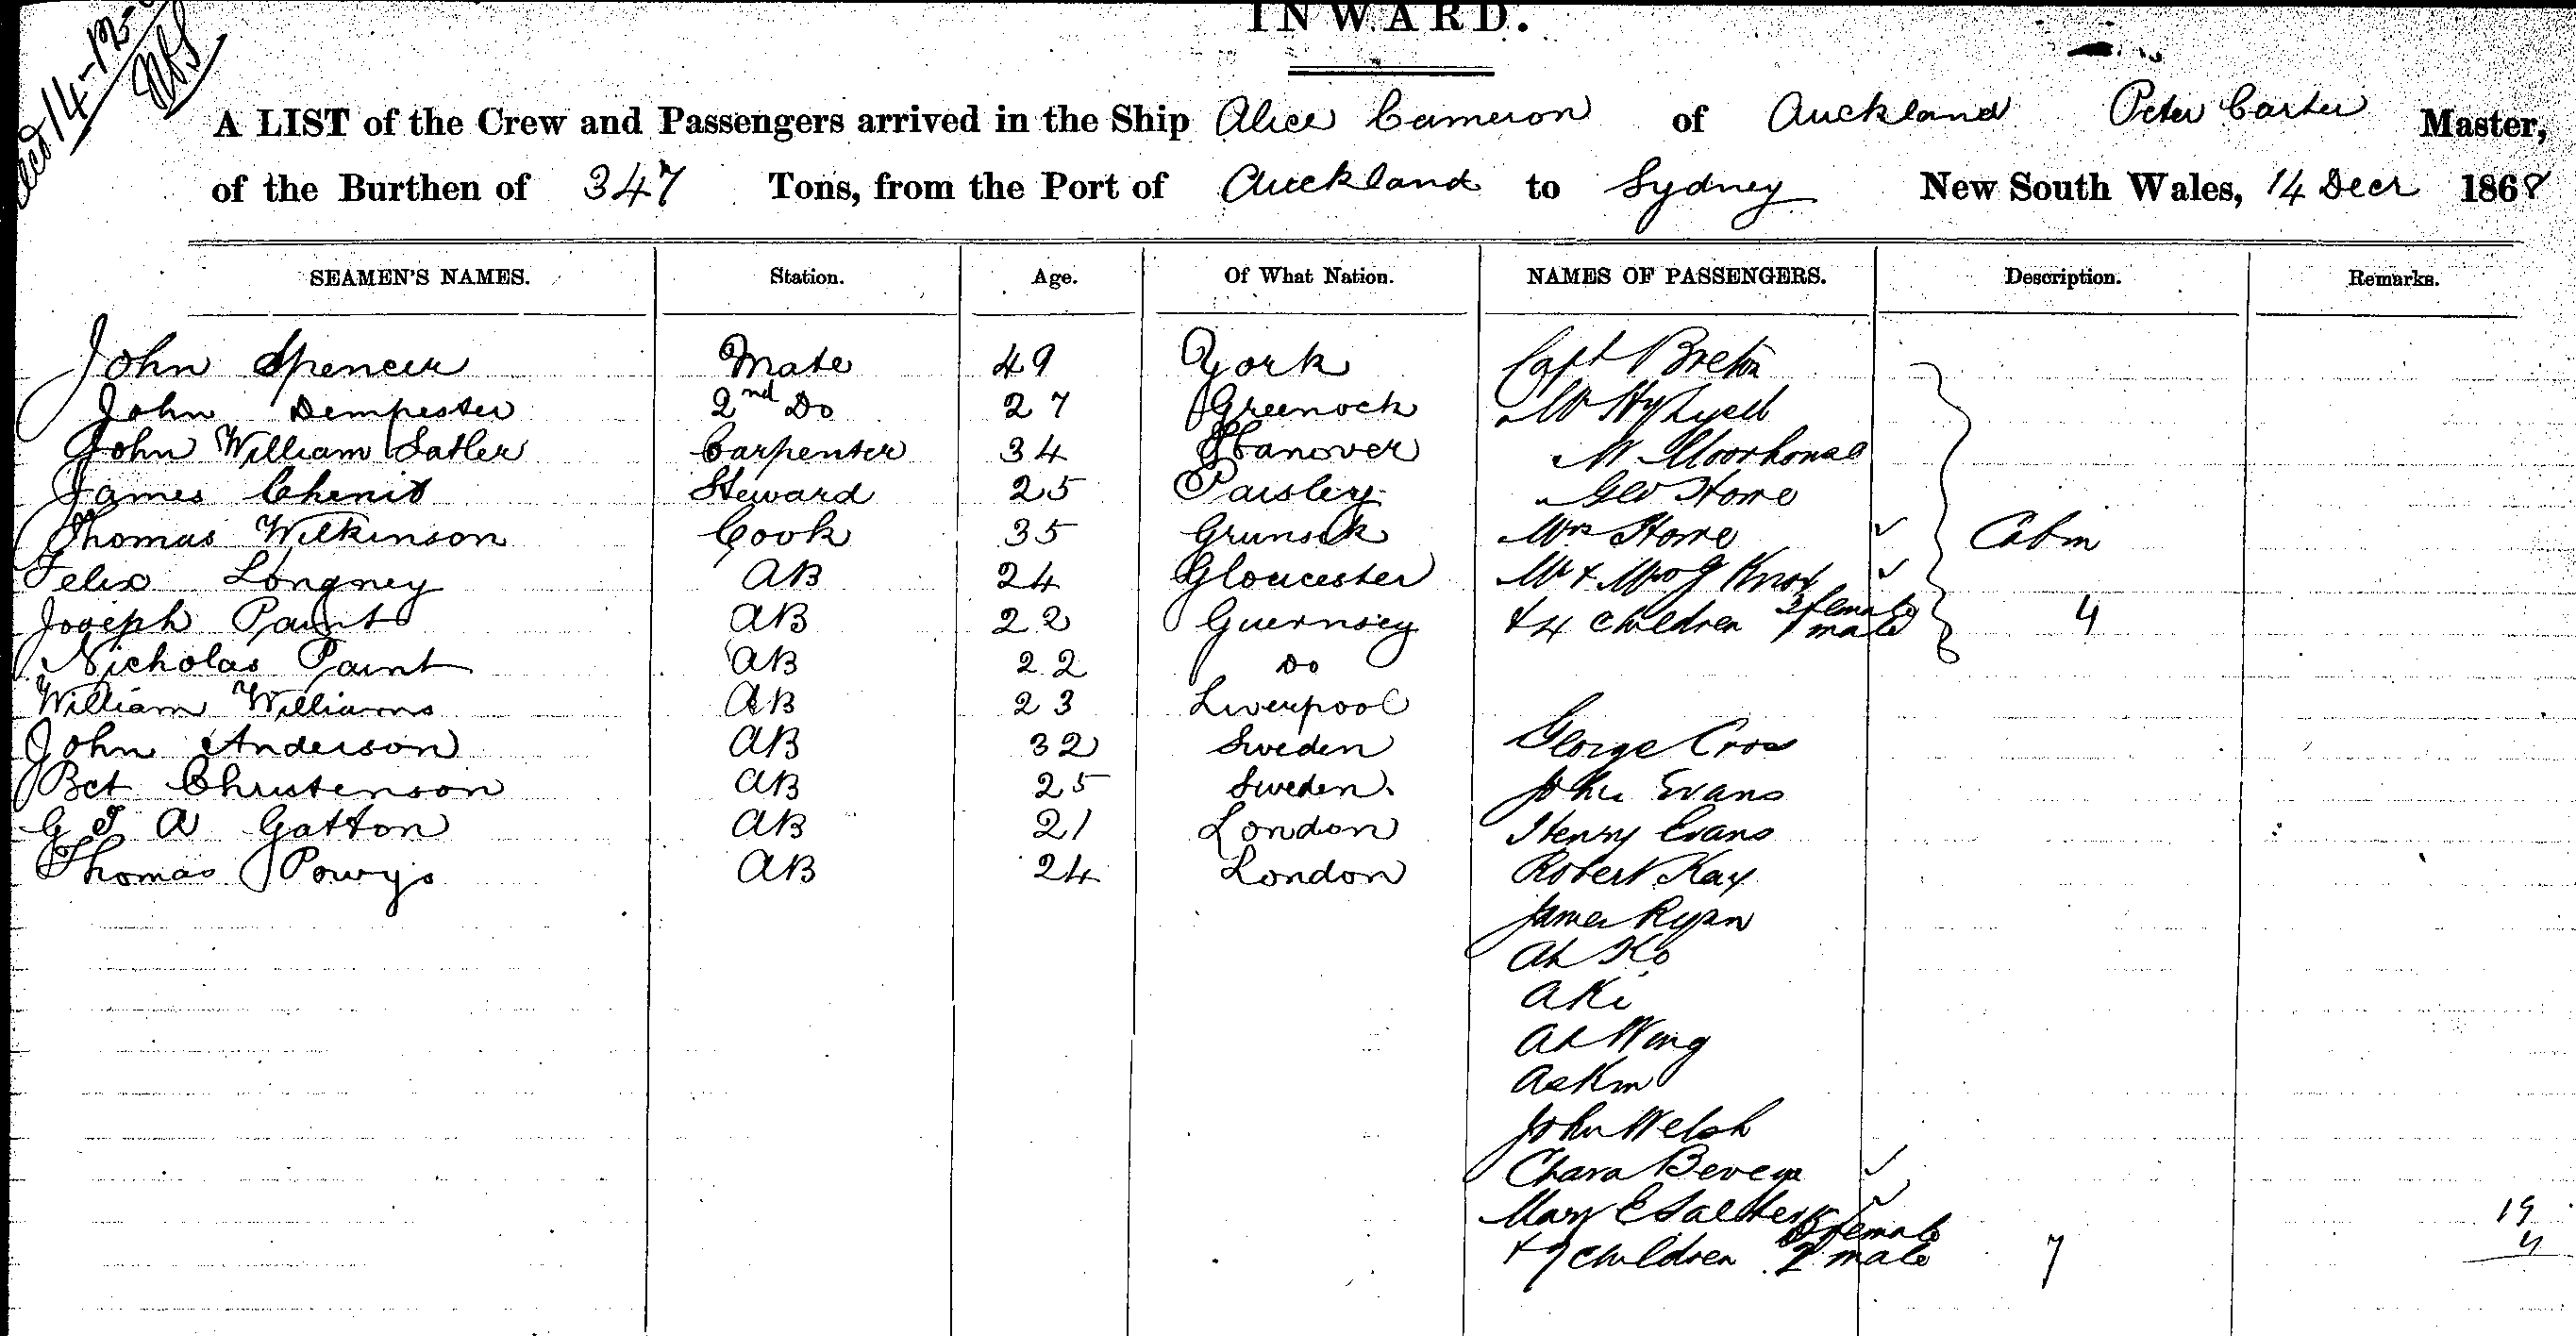 INWARD.
A LIST of the Crew and Passengers arrived in the Ship Alice Cameron of Auckland Peter Carter Master,
of the Burthen of 347 Tons, from the Port of Auckland to Sydney New South Wales, 14 Decr 1868
SEAMEN'S NAMES. Station. Age. Of What Nation. NAMES OF PASSENGERS. Description. Remarks.
John Spencer Mate 49 York Capt Breton
John Dempester 2nd Do 27 Greenock Mr Hy Lyell
John William Satler Carpenter 34 Hanover Mr Moorhouse
James Steward 25 Paisley Geo Horne
Thomas Wilkinson Cook 35 Mrs Horne Cabin
Felix Longney AB 24 Gloucester Mr & Mrs J Knox
Joseph Paint AB 22 Guernsey & 4 children 3 female 1 male 4
Nicholas Paint AB 22 Do
William Williams AB 23 Liverpool
John Anderson AB 32 Sweden George Cross
Bet Christenson AB 25 Sweden. John Evans
G T A Gatton AB 21 London Henry Evans
Thomas Powys AB 24 London Robert Kay
James Ryan
Ah Ko
A Ki
Ah Wing
John Welsh
Mary E
& 7 children female 2 male 7
19
4